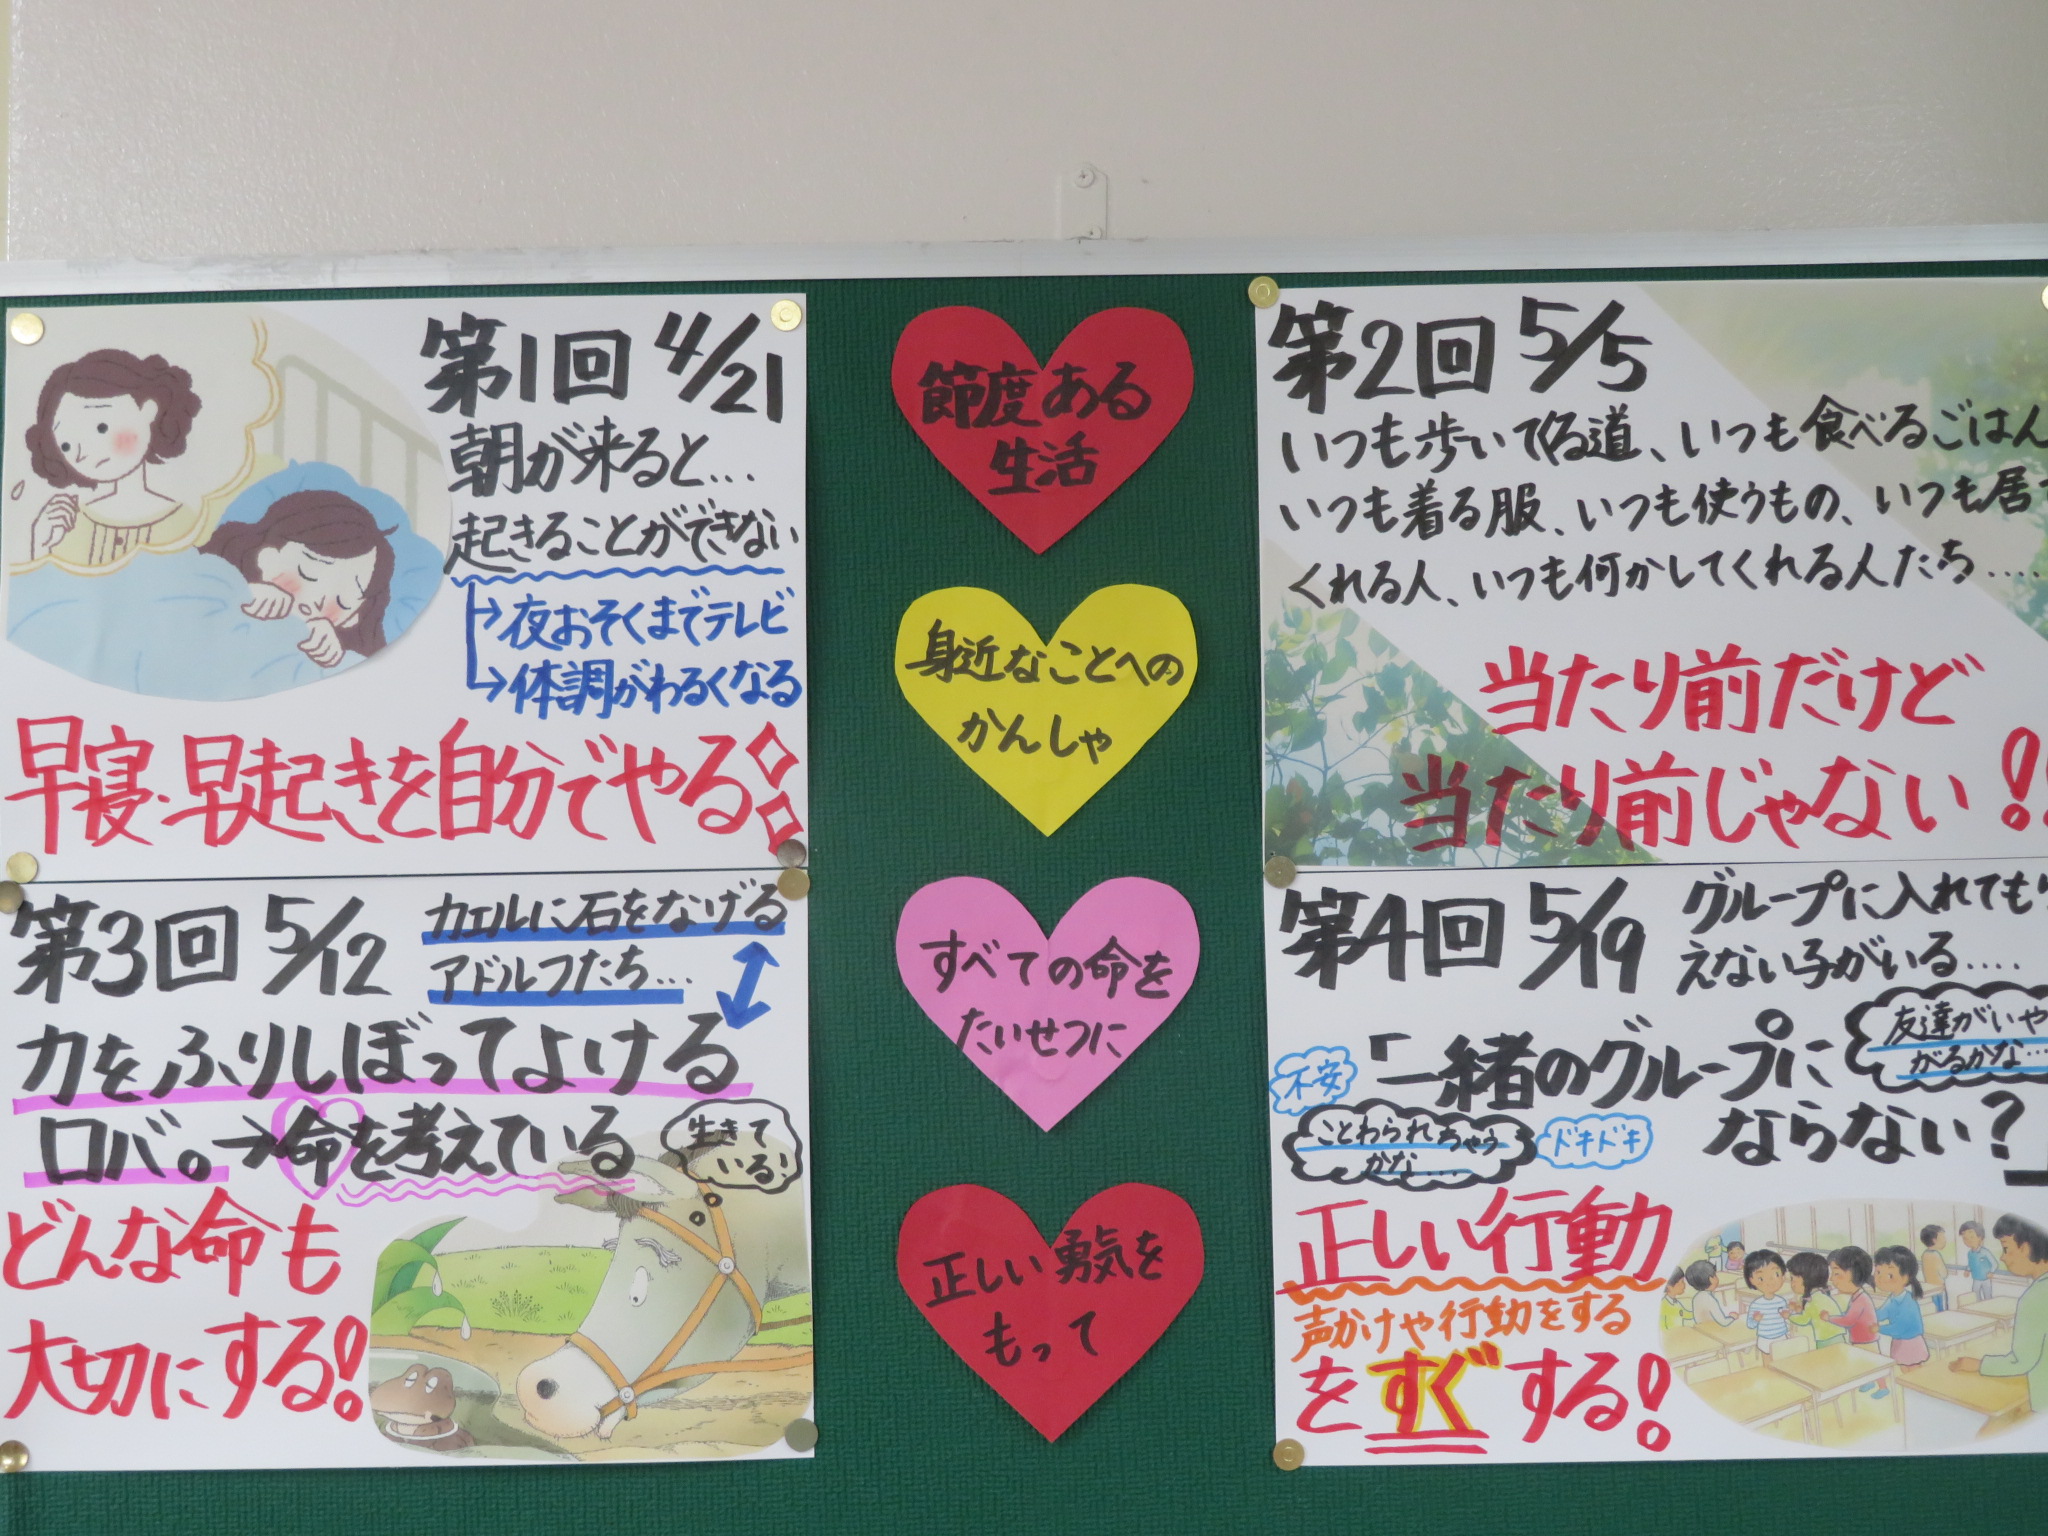 第1回 4/21
朝が来ると…
起きることができない
→夜おそくまでテレビ
→体調がわるくなる
早寝・早起きを自分でやる
節度ある
生活
身近なことへの
かんしゃ
すべての命を
たいせつに
正しい勇気を
もって
第2回 5/5
いつも歩いてくる道、いつも食べるごはん
いつも着る服、いつも使うもの、いつも居て
くれる人、いつも何かしてくれる人たち.....
当たり前だけど
当たり前じゃない!!
第3回 5/12
カエルに石をなげる
アドルフたち…
力をふりしぼってよける
ロバ。→命を考えている
生きて
いる!
どんな命も
大切にする!
第4回 5/19
グループに入れても
えない子がいる....
「一緒のグループに
ならない?」
友達がいや
がるかな…
不安
ことわられちゃう
かな....
ドキドキ
正しい行動
声かけや行動をする
をすぐする!